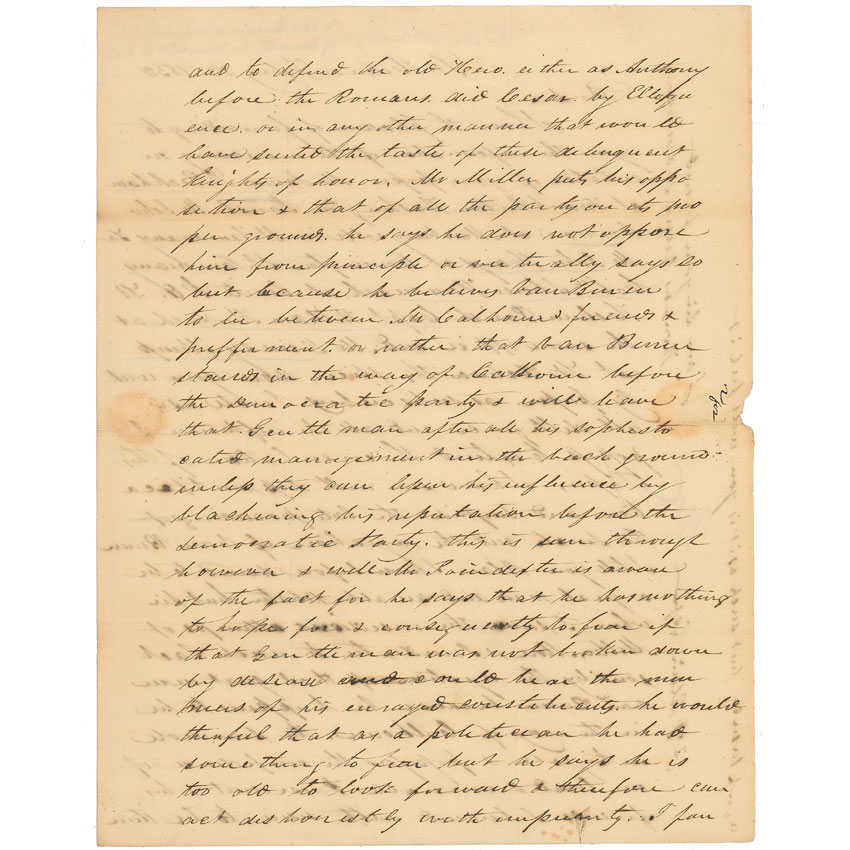 and to defend the old Hero. either as Anthony
before the Romans. did Cesar. by Elloqu
ence. or in any other manner that would
have suited the taste of these delinquent
Knights of honor. Mr Miller puts his oppo
sition & that of all the party on its pro
per grounds. he says he does not oppose
him from principle or virtually says so
but because he believes Van Buren
to be between Mr Calhouns friends &
prefferment. or rather that Van Buren
stands in the way of Calhoun before
the Democratic party & will leave
that Gentleman after all his sophisto
cated management in the back ground-
unless they can lessen his influence by
blackning his reputation before the
Democratic Party. this is seen through
however & well Mr Poindexter is aware
of the fact for he says that he has nothing
to hope for & consequently to fear if
that Gentleman was not broken down
by disease and could hear the mur
murs of his enraged constituents, he would
thinful that as a politician he had
something to fear but he says he is
too old to look forward & therefore can
act dishonestly with impunity. I fan